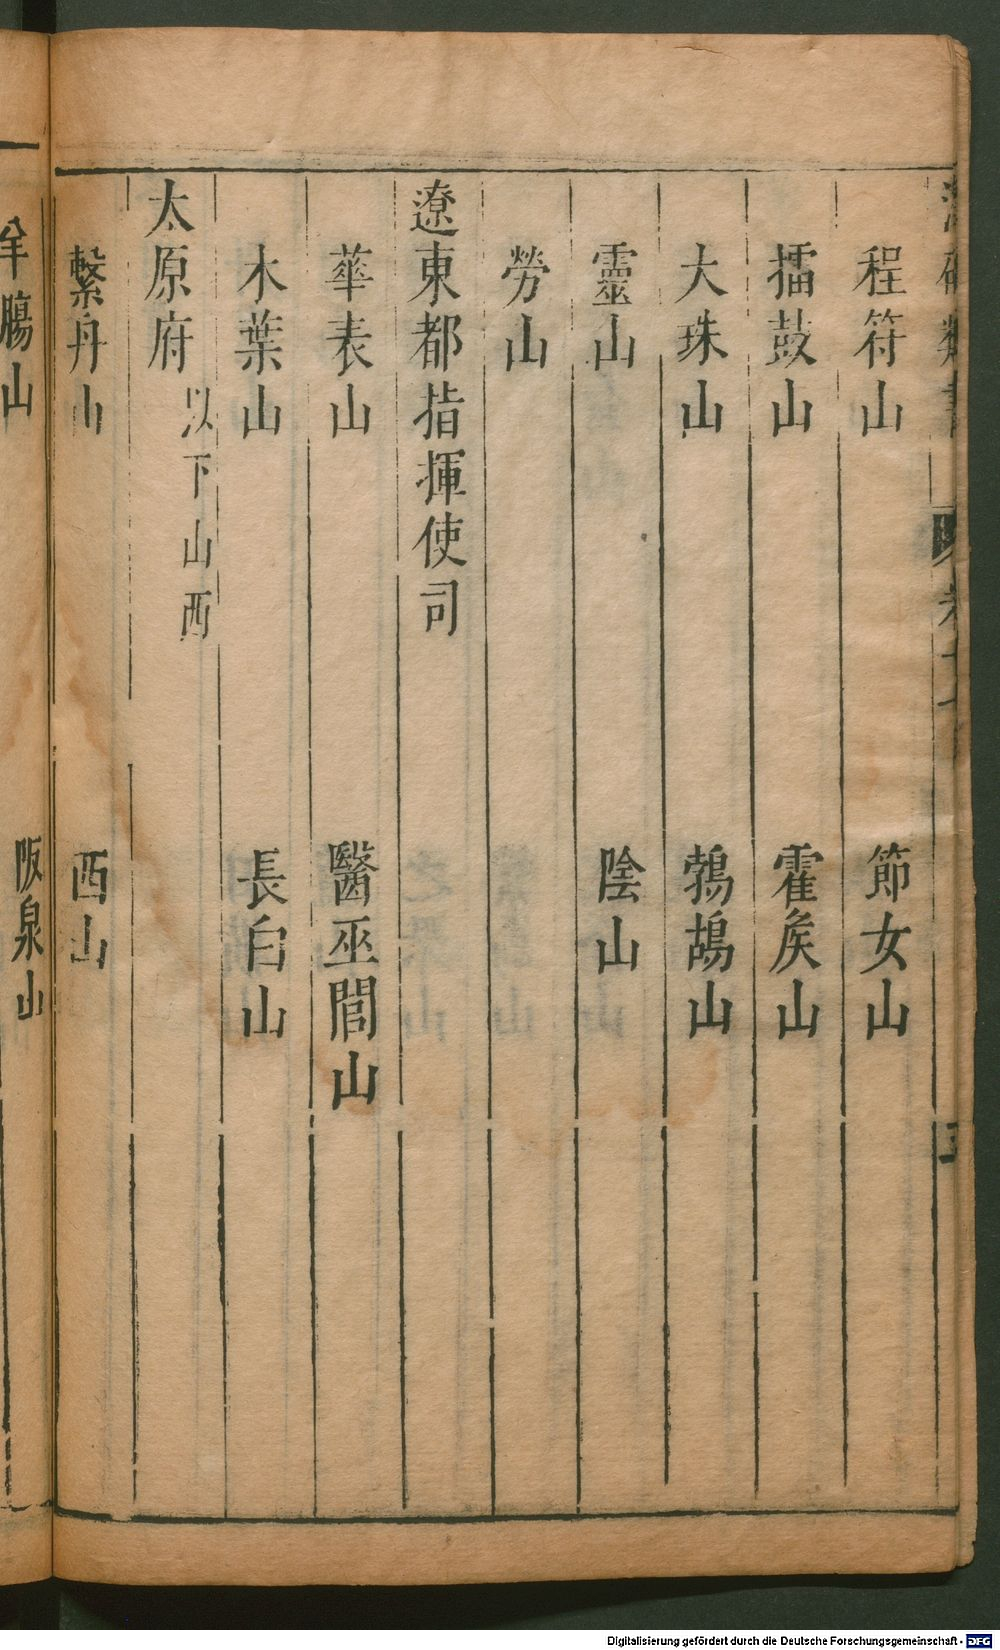 程符山 節女山
擂鼓山 霍侯山
大珠山 鵓鴣山
靈山 陰山
勞山
遼東都指揮使司
華表山 醫巫閭山
木葉山 長白山
太原府 以下山西
繫舟山 西山
羊腸山 阪泉山
Digitalisierung gefördert durch die Deutsche Forschungsgemeinschaft - DFG